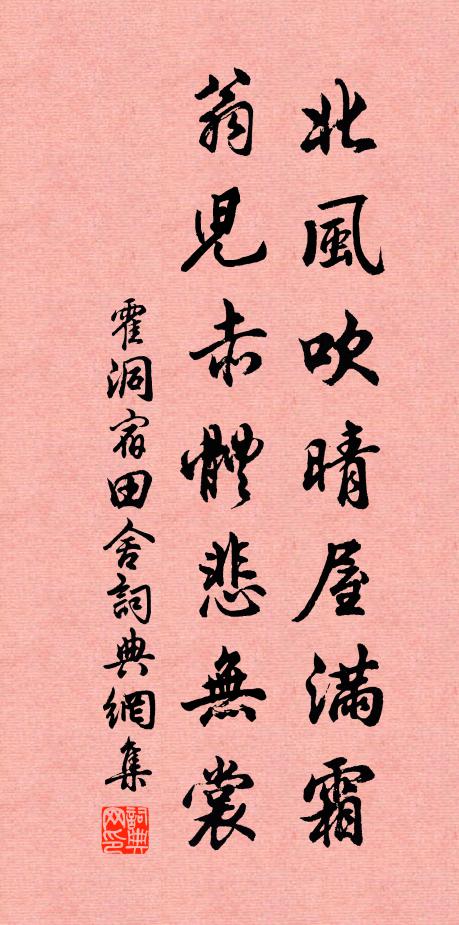 北風吹晴屋滿霜
翁兒赤體悲無裳
霍洞宿田舍詞典網集
詞典网印